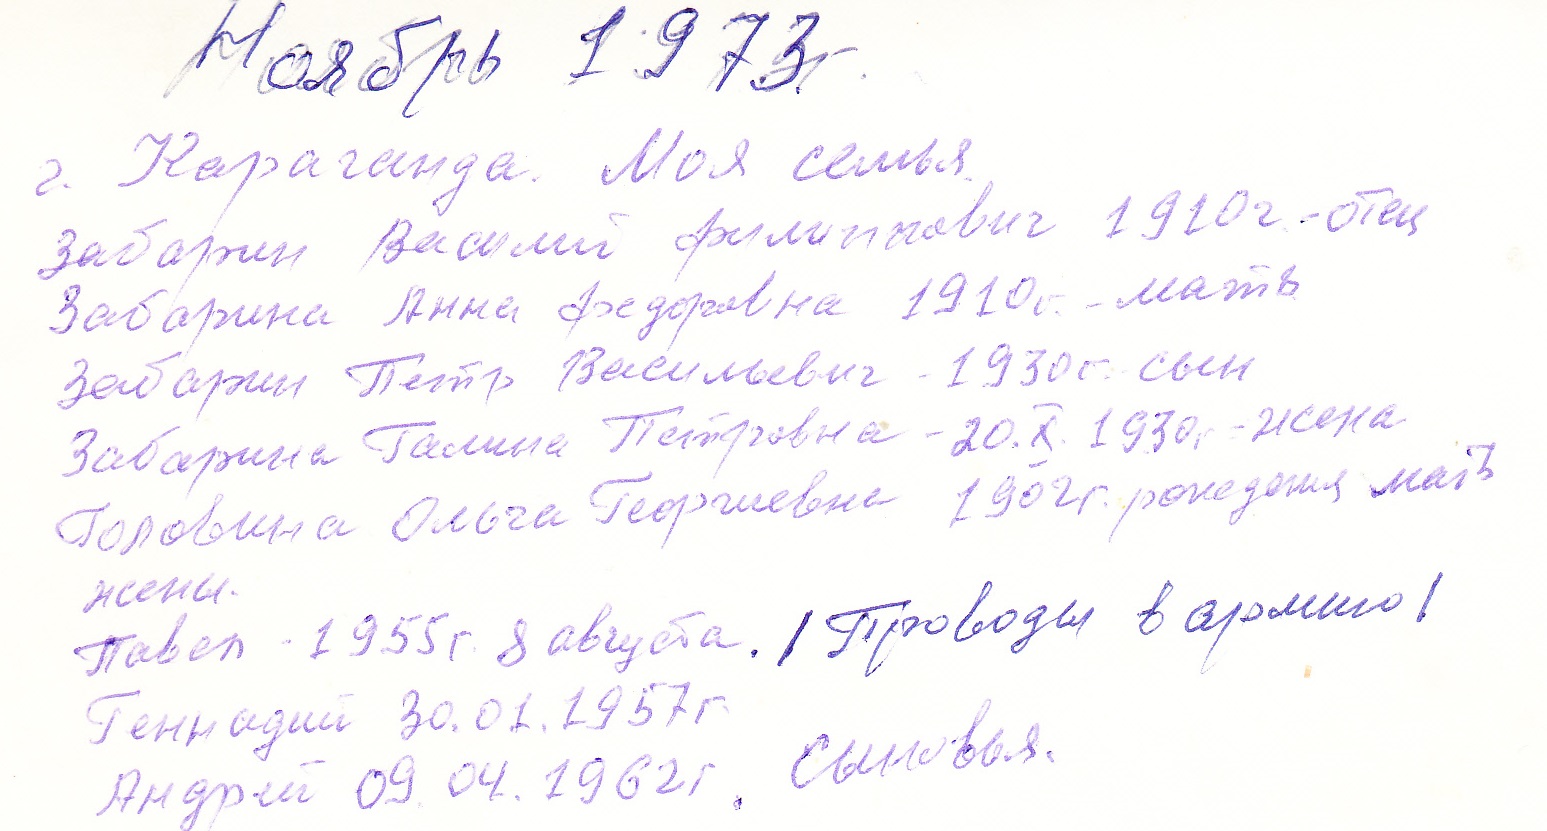 Ноябрь 1973г.
г. Караганда. Моя семья.
Забарин Василий Филиппович 1910г. - отец
Забарина Анна Федоровна 1910г. - мать
Забарин Петр Васильевич - 1930г. сын
Забарина Галина Петровна - 20.X.1930г. - жена
Головина Ольга Георгиевна 1902г. рождения мать
жены.
Павел - 1955г. 8 августа. / Проводы в армию /
Геннадий 30.01.1957г
Андрей 09.04.1962г. сыновья.